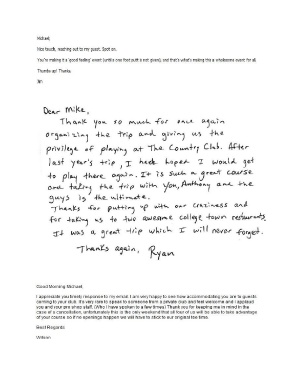 Michael,
Nice touch, reaching out to my guest. Spot on.
You're making it a "good feeling" event (while one foot putt is not given), and that's what's making this a wholesome event for all.
Thumbs up! Thanks.
Jim
Dear Mike,
Thank you so much for once again
organizing the trip and giving us the
privilege of playing at The Country Club. After
last year's trip, I had hoped I would get
to play there again. It is such a great course
and taking the trip with you, Anthony and the
guys is the ultimate.
Thanks for putting up with our craziness and
for taking us to two awesome college town restaurants.
It was a great trip which I will never forget.
Thanks again,
Ryan
Good Morning Michael,
I appreciate you timely response to my email. I am very happy to see how accommodating you are to guests
coming to your club. It's very rare to speak to someone from a private club and feel welcome and I applaud
you and your pro shop staff. (Who I have spoken to a few times) Thank you for keeping me in mind in the
case of a cancellation, unfortunately this is the only weekend that all four of us will be able to take advantage
of your course so if no openings happen we will have to stick to our original tee time.
Best Regards
William